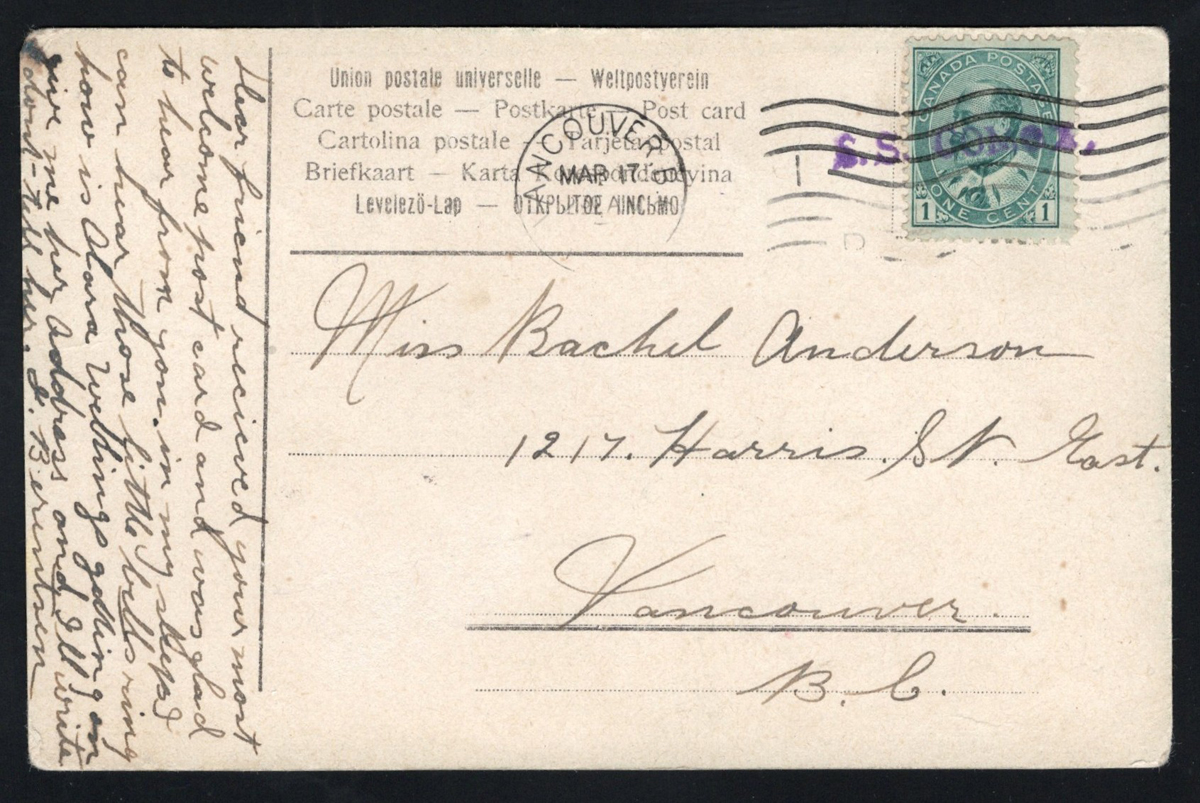 Union postale universelle — Weltpostverein
Carte postale — Postkarte — Post card
Cartolina postale — Tarjeta postal
Briefkaart — Karta Korespondencyjna
Levelező-Lap — ОТКРЫТОЕ ПИСЬМО
VANCOUVER
MAR 17
CANADA POSTAGE
1 ONE CENT 1
S.S. COMOX.
Miss Rachel Anderson
1217. Harris. St. East.
Vancouver.
B. C.
Dear friend recieved your most
welcome post card and was glad
to hear from you. in my sleep I
can hear those little bells ring
how is Clara getting on
give me her address and I'll write
dont tell her. I. Berentsen